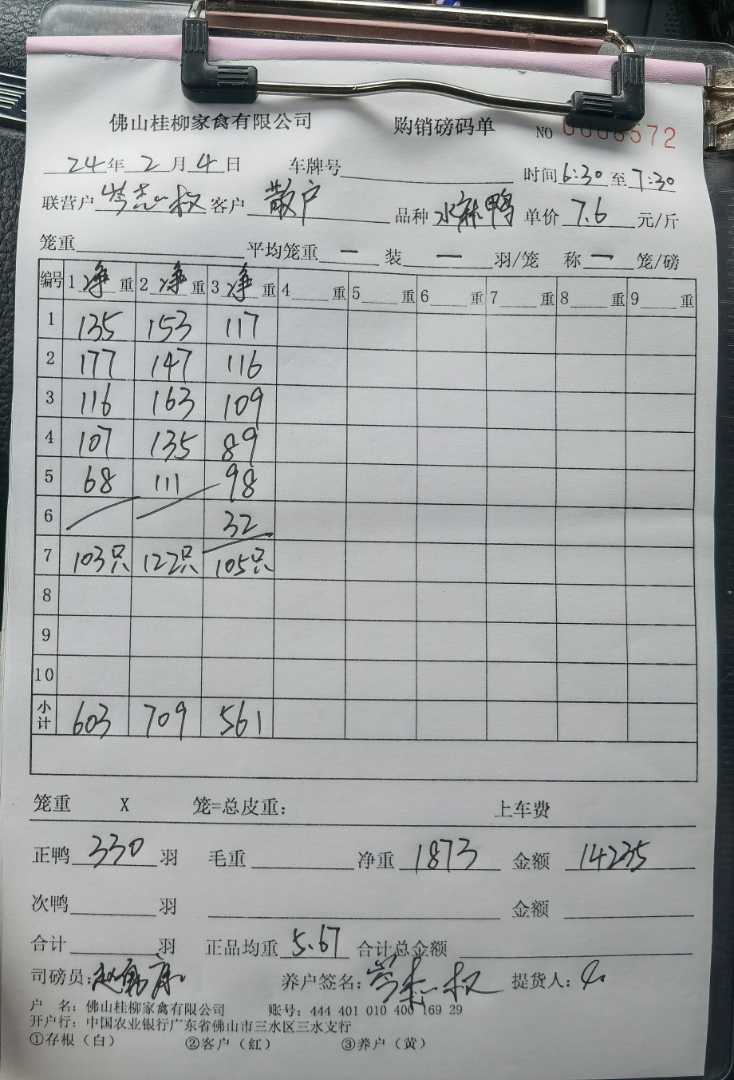 佛山桂柳家禽有限公司 购销磅码单 NO 0006572
24年 2月 4日 车牌号 时间 6:30 至 7:30
联营户 岑志权 客户 散户 品种 水麻鸭 单价 7.6 元/斤
笼重 平均笼重 一 装 一 羽/笼 称 一 笼/磅
编号 1 净 重 2 净 重 3 净 重 4 重 5 重 6 重 7 重 8 重 9 重
1 135 153 117
2 177 147 116
3 116 163 109
4 107 135 89
5 68 111 98
6 32
7 103只 122只 105只
8
9
10
小计 603 709 561
笼重 X 笼=总皮重: 上车费
正鸭 330 羽 毛重 净重 1873 金额 14235
次鸭 羽 金额
合计 羽 正品均重 5.67 合计总金额
司磅员: 养户签名: 岑志权 提货人:
户 名: 佛山桂柳家禽有限公司 账号: 444 401 010 400 169 29
开户行: 中国农业银行广东省佛山市三水区三水支行
①存根(白) ②客户(红) ③养户(黄)